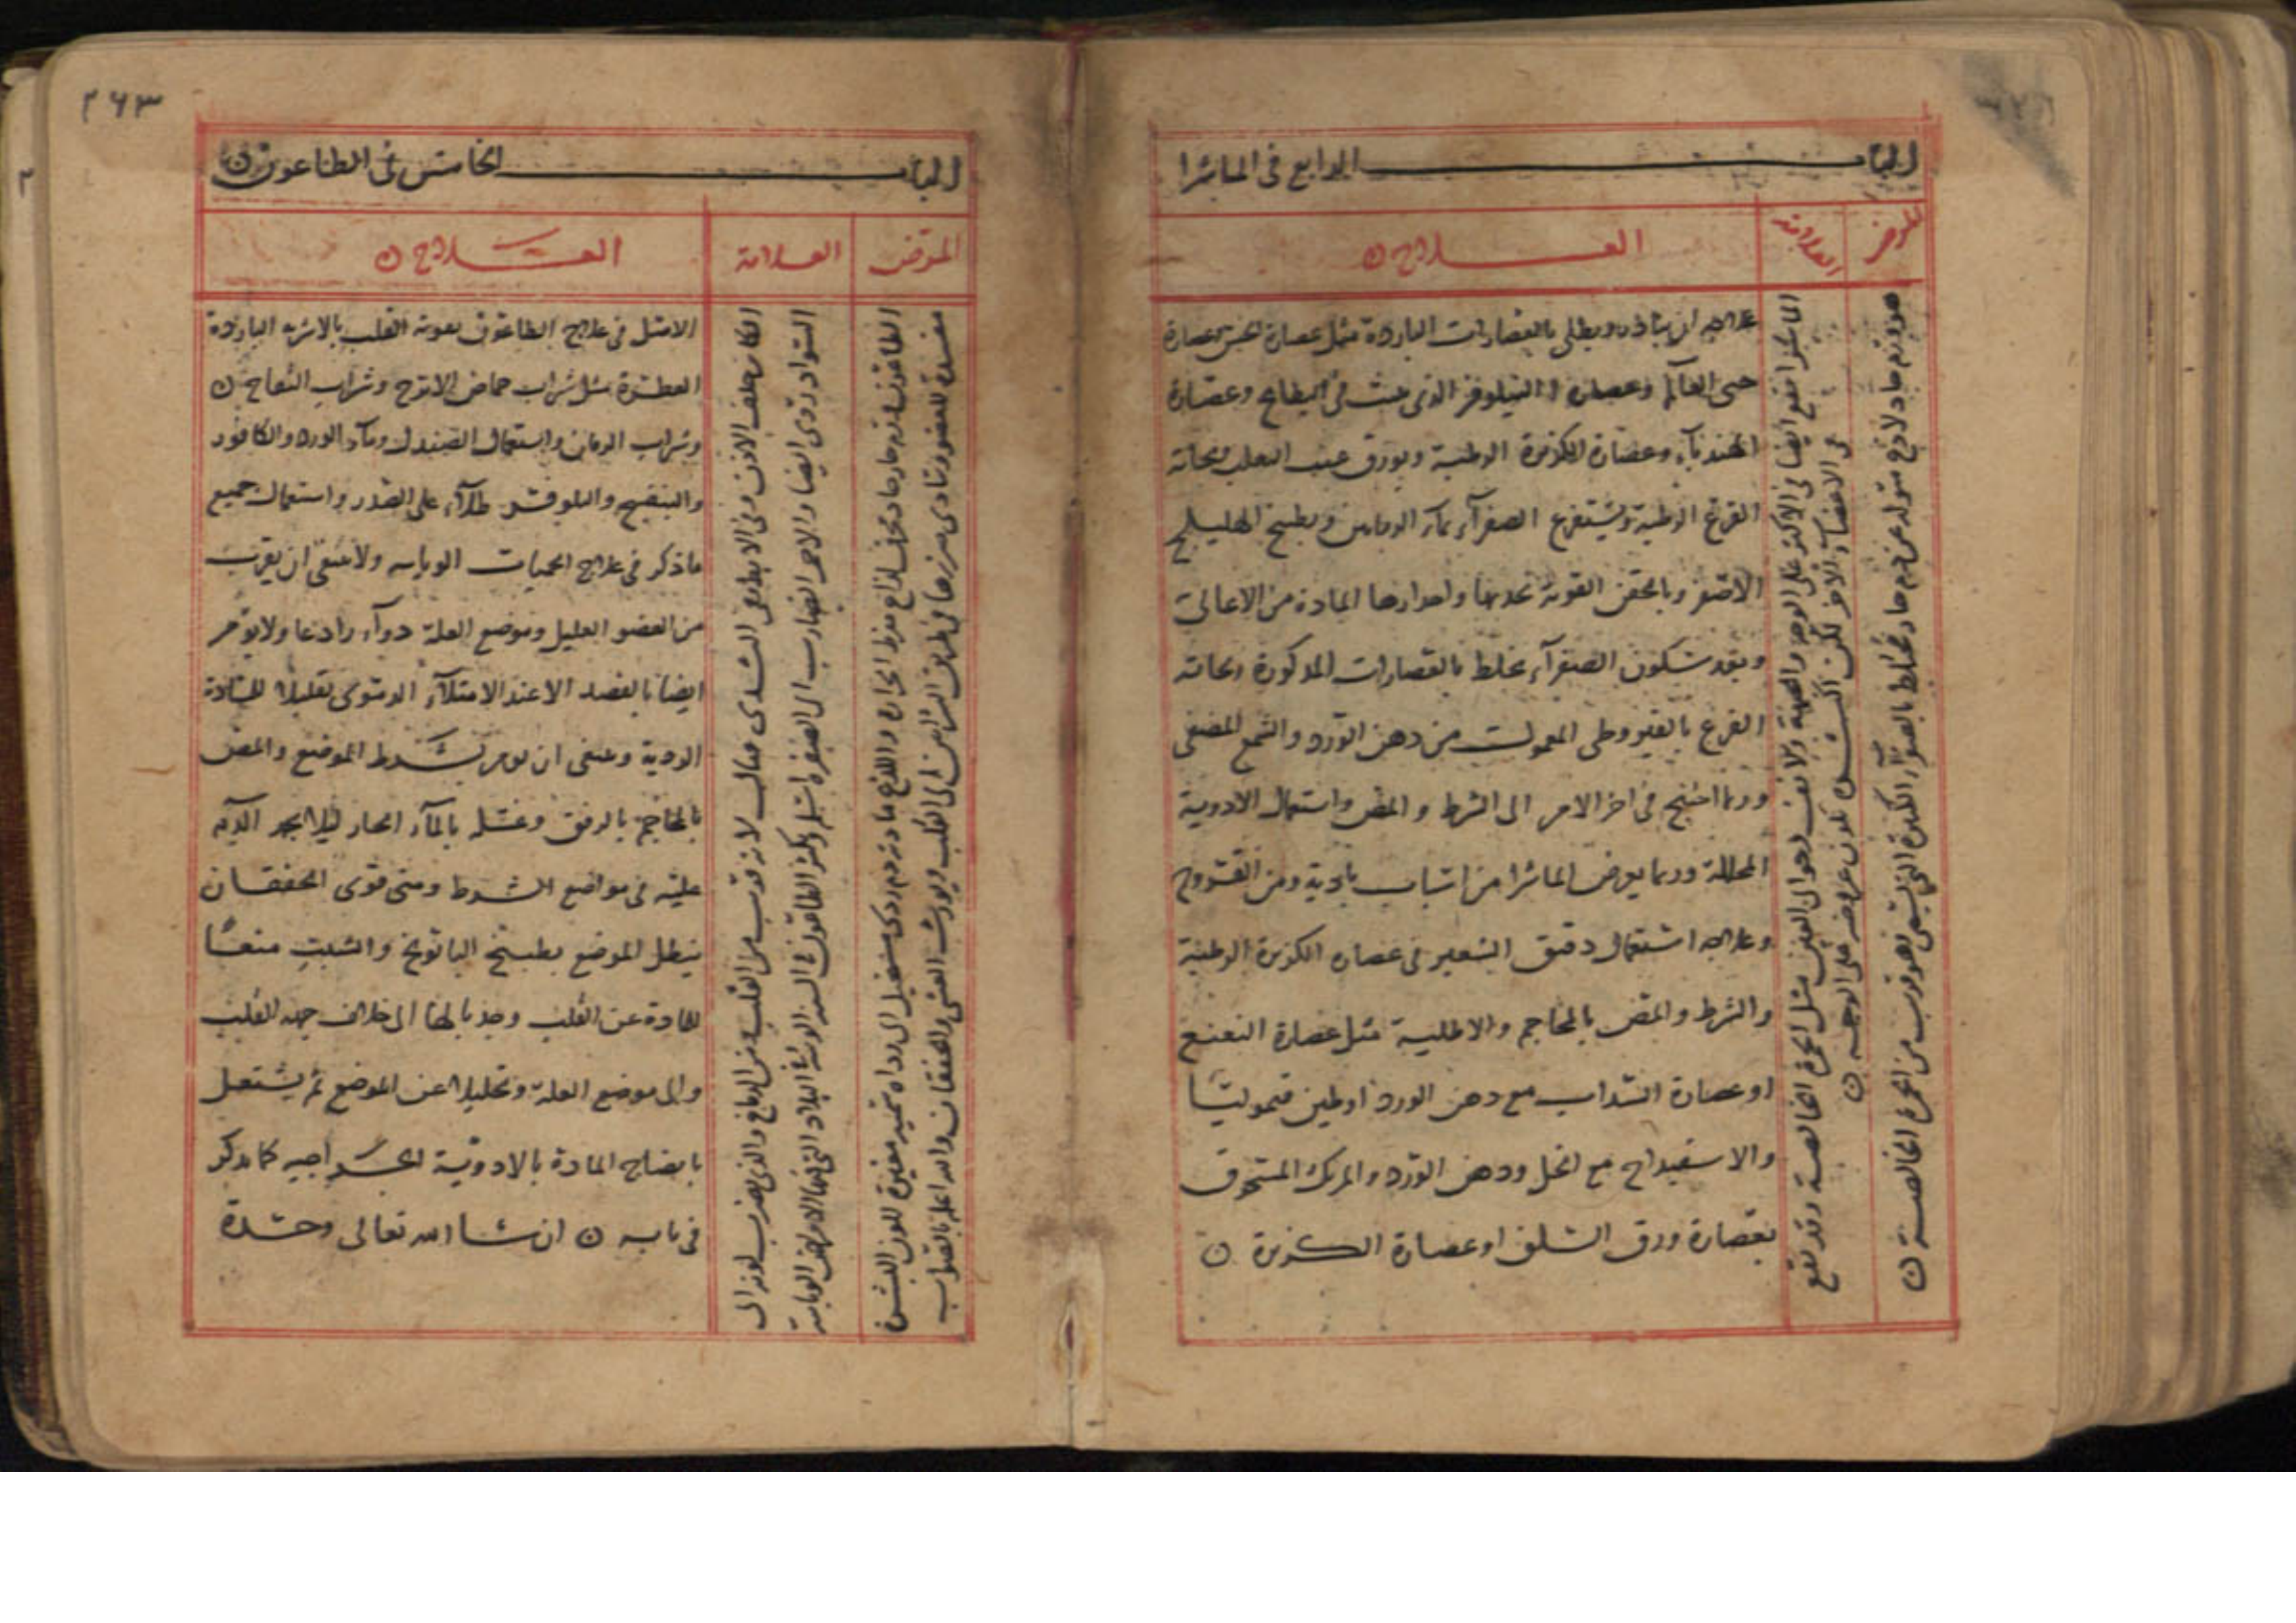 الباب الرابع في الماشرا
المرض
العلامة
العـــلاج ن
هو ورم حاد لاذع متولد عن دم حاد مخالط بالصفرآء الكدرة التي تسمى
وهو قريب من الحمرة الخالصة ن
الماشرا تقع ايضا في الاكثر على الوجه والجبهة والانف وحوالى العين مثل الحمرة الخالصة وقد تقع
في الاعضآء الاخر لكن اكثر يكون عروضه على الوجه ن
علاجه ان يبادر ويطلى بالعصارات الباردة مثل عصارة الخس وعصارة
حى العالم وعصارة النيلوفر الذى ينبت في البطايح وعصارة
الهندبآء وعصارة الكزبرة الرطبة وبورق عنب الثعلب بحاتة
القرع الرطبة ويستفرغ الصفرآء بمآء الرمانين وبطبيخ الهليلج
الاصفر وبالحقن القوية لجذبها واحدارها المادة من الاعالى
وبعد سكون الصفرآء يخلط بالعصارات المذكورة بحاتة
القرع بالقيروطى المعمول من دهن الورد والشمع المصفى
وربما احتيج في اخر الامر الى الشرط و المص واستعمال الادوية
المحللة وربما يعرض الماشرا من اسباب بادية ومن القروح
وعلاجه استعمال دقيق الشعير في عصاره الكزبرة الرطبة
والشرط والمص بالمحاجم والاطلية مثل عصارة النعنع
او عصارة السداب مع دهن الورد او طين قيموليا
والاسفيداج مع الخل ودهن الورد والمرتك المسحوق
بعصارة ورق السلق او عصارة الكزبرة ن
٢٦٣
الباب الخامس في الطاعون ن
المرض
العلامة
العـــلاج ن
الطاعون ورم حار حاد لذاع مفرط الحرارة واللذع مادته دم ردى مستحيل الى رداه سمية مغيرة للون البشرة
مفسدة للعضو وتتادى ضررها في طريق الشرايين الى القلب ويورث الغشى والخفقان والله اعلم بالصواب
الكاين خلف الاذن وفي الابط وفي الثدى قتال لانه قريب من القلب ومن الدماغ والذى يضرب لونه الى
السواد ردى ايضا والاحمر الضارب الى الصفرة اسلم ويكثر الطاعون في السنة الوبائية في البلاد
الامثل في علاج الطاعون تقوية القلب بالاشربه الباردة
العطرة مثل شراب حماض الاترج وشراب التفاح ن
وشراب الرمان واستعمال الصندل ومآء الورد والكافور
والبنفسج والنيلوفر طلآء على الصدر واستعمال جميع
ماذكر في علاج الحميات الوبايه ولا ينبغى ان يقرب
من العضو العليل وموضع العلة دوآء رادعا ولا يومر
ايضا بالفصد الا عند الامتلآء الدموى تقليلا للمادة
الردية وينبغى ان يومر بشرط الموضع والمص
بالمحاجم بالرفق وغسله بالمآء الحار ليلا يجمد الدم
عليه في مواضع الشرط ومتى قوى الخفقان
ينطل الموضع بطبيخ البابونج والشبت منعا
للمادة عن القلب وجذبا لها الى خلاف جهه القلب
والى موضع العلة وتحليلا عن الموضع ثم يشتغل
بانضاج المادة بالادوية الخراجيه كما يذكر
في بابه ن ان شا الله تعالى وحده